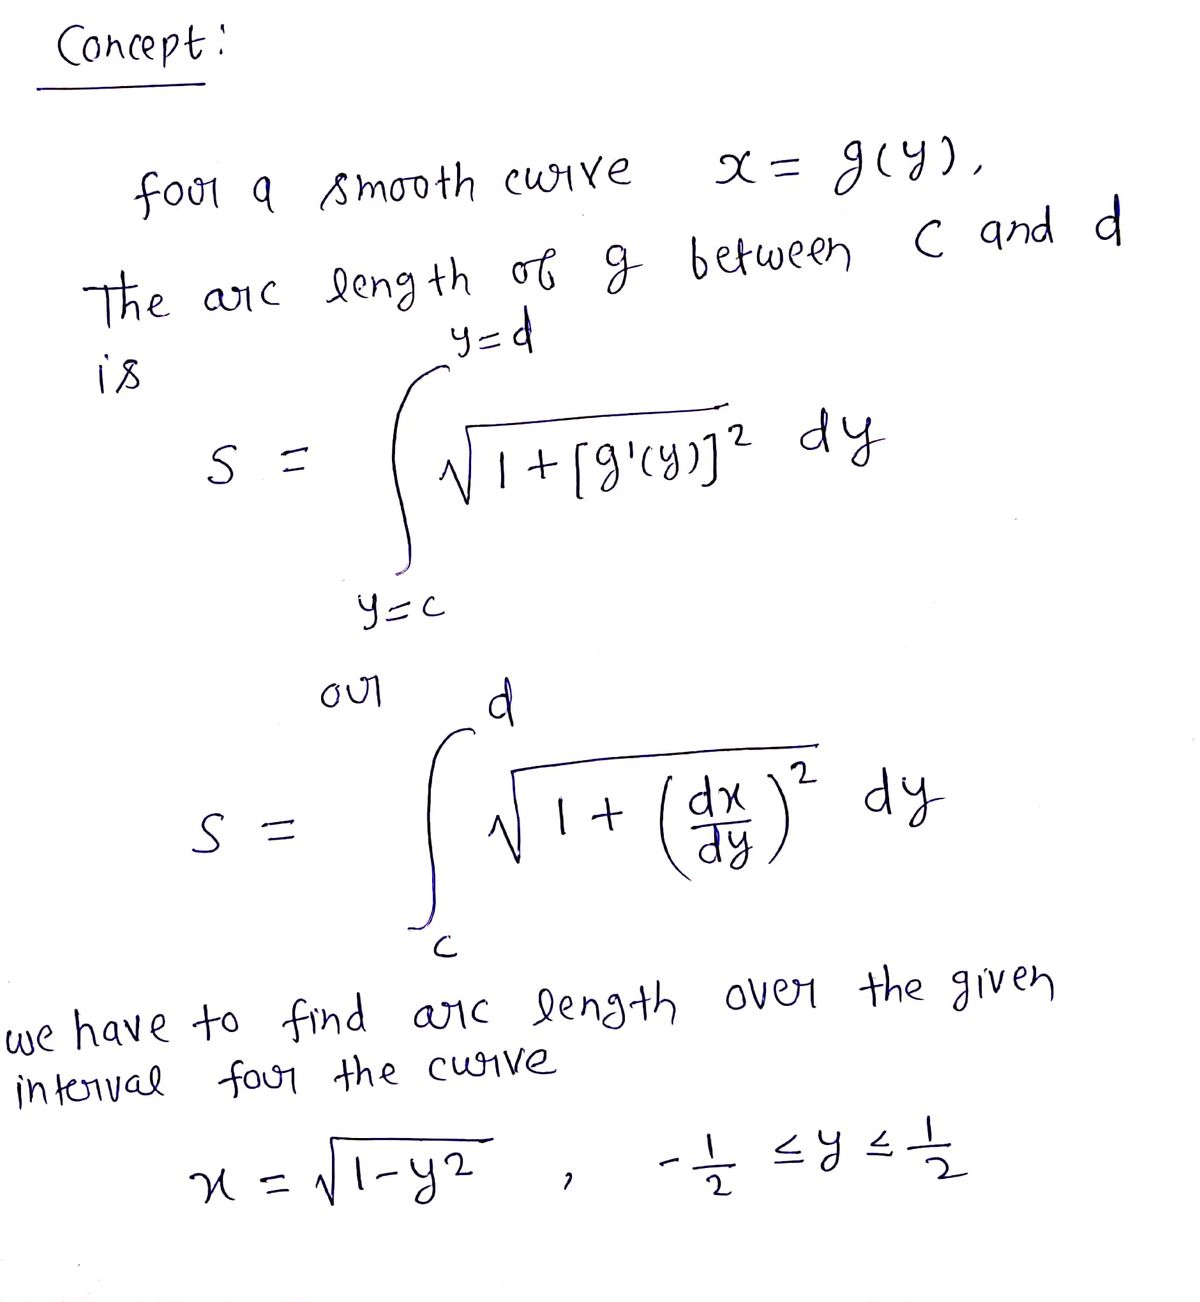 Concept:
for a smooth curve x = g(y),
The arc length of g between c and d
is
S = ∫_{y=c}^{y=d} √(1+[g'(y)]²) dy
or
S = ∫_c^d √(1 + (dx/dy)²) dy
we have to find arc length over the given
interval for the curve
x = √(1-y²) , -1/2 ≤ y ≤ 1/2